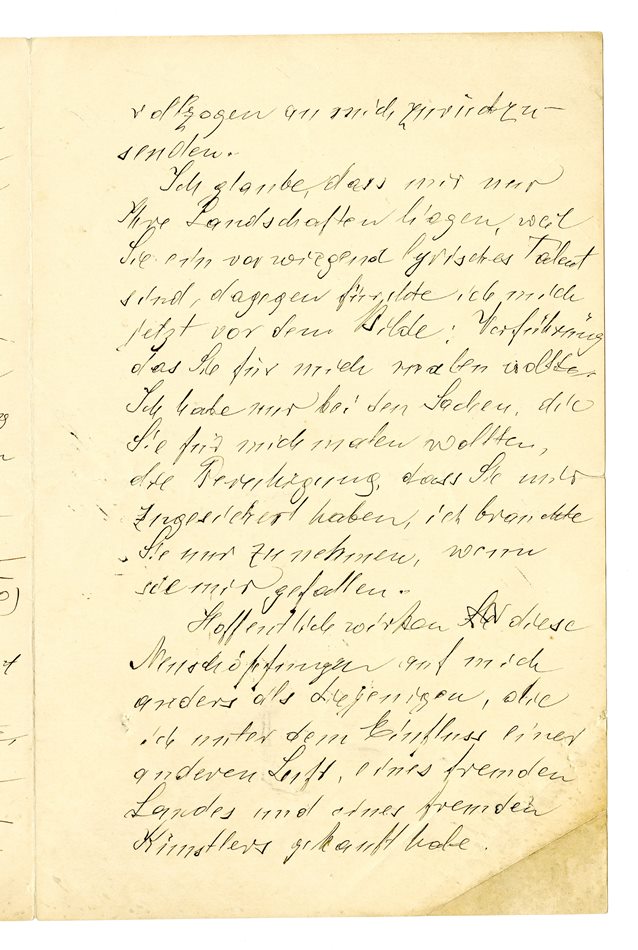 vollzogen an mich zurückzu-
senden.
Ich glaube, dass mir nur
Ihre Landschaften liegen, weil
Sie ein vorwiegend lyrisches Talent
sind, dagegen fürchte ich mich
jetzt vor dem Bilde: Verführung
das Sie für mich malen wollten.
Ich habe nur bei den Sachen, die
Sie für mich malen wollten,
die Beruhigung, dass Sie mir
zugesichert haben, ich brauchte
Sie nur zu nehmen, wenn
sie mir gefallen.
Hoffentlich wirken diese
Neuschöpfungen auf mich
anders als diejenigen, die
ich unter dem Einfluss einer
anderen Luft, eines fremden
Landes und eines fremden
Künstlers gekauft habe.